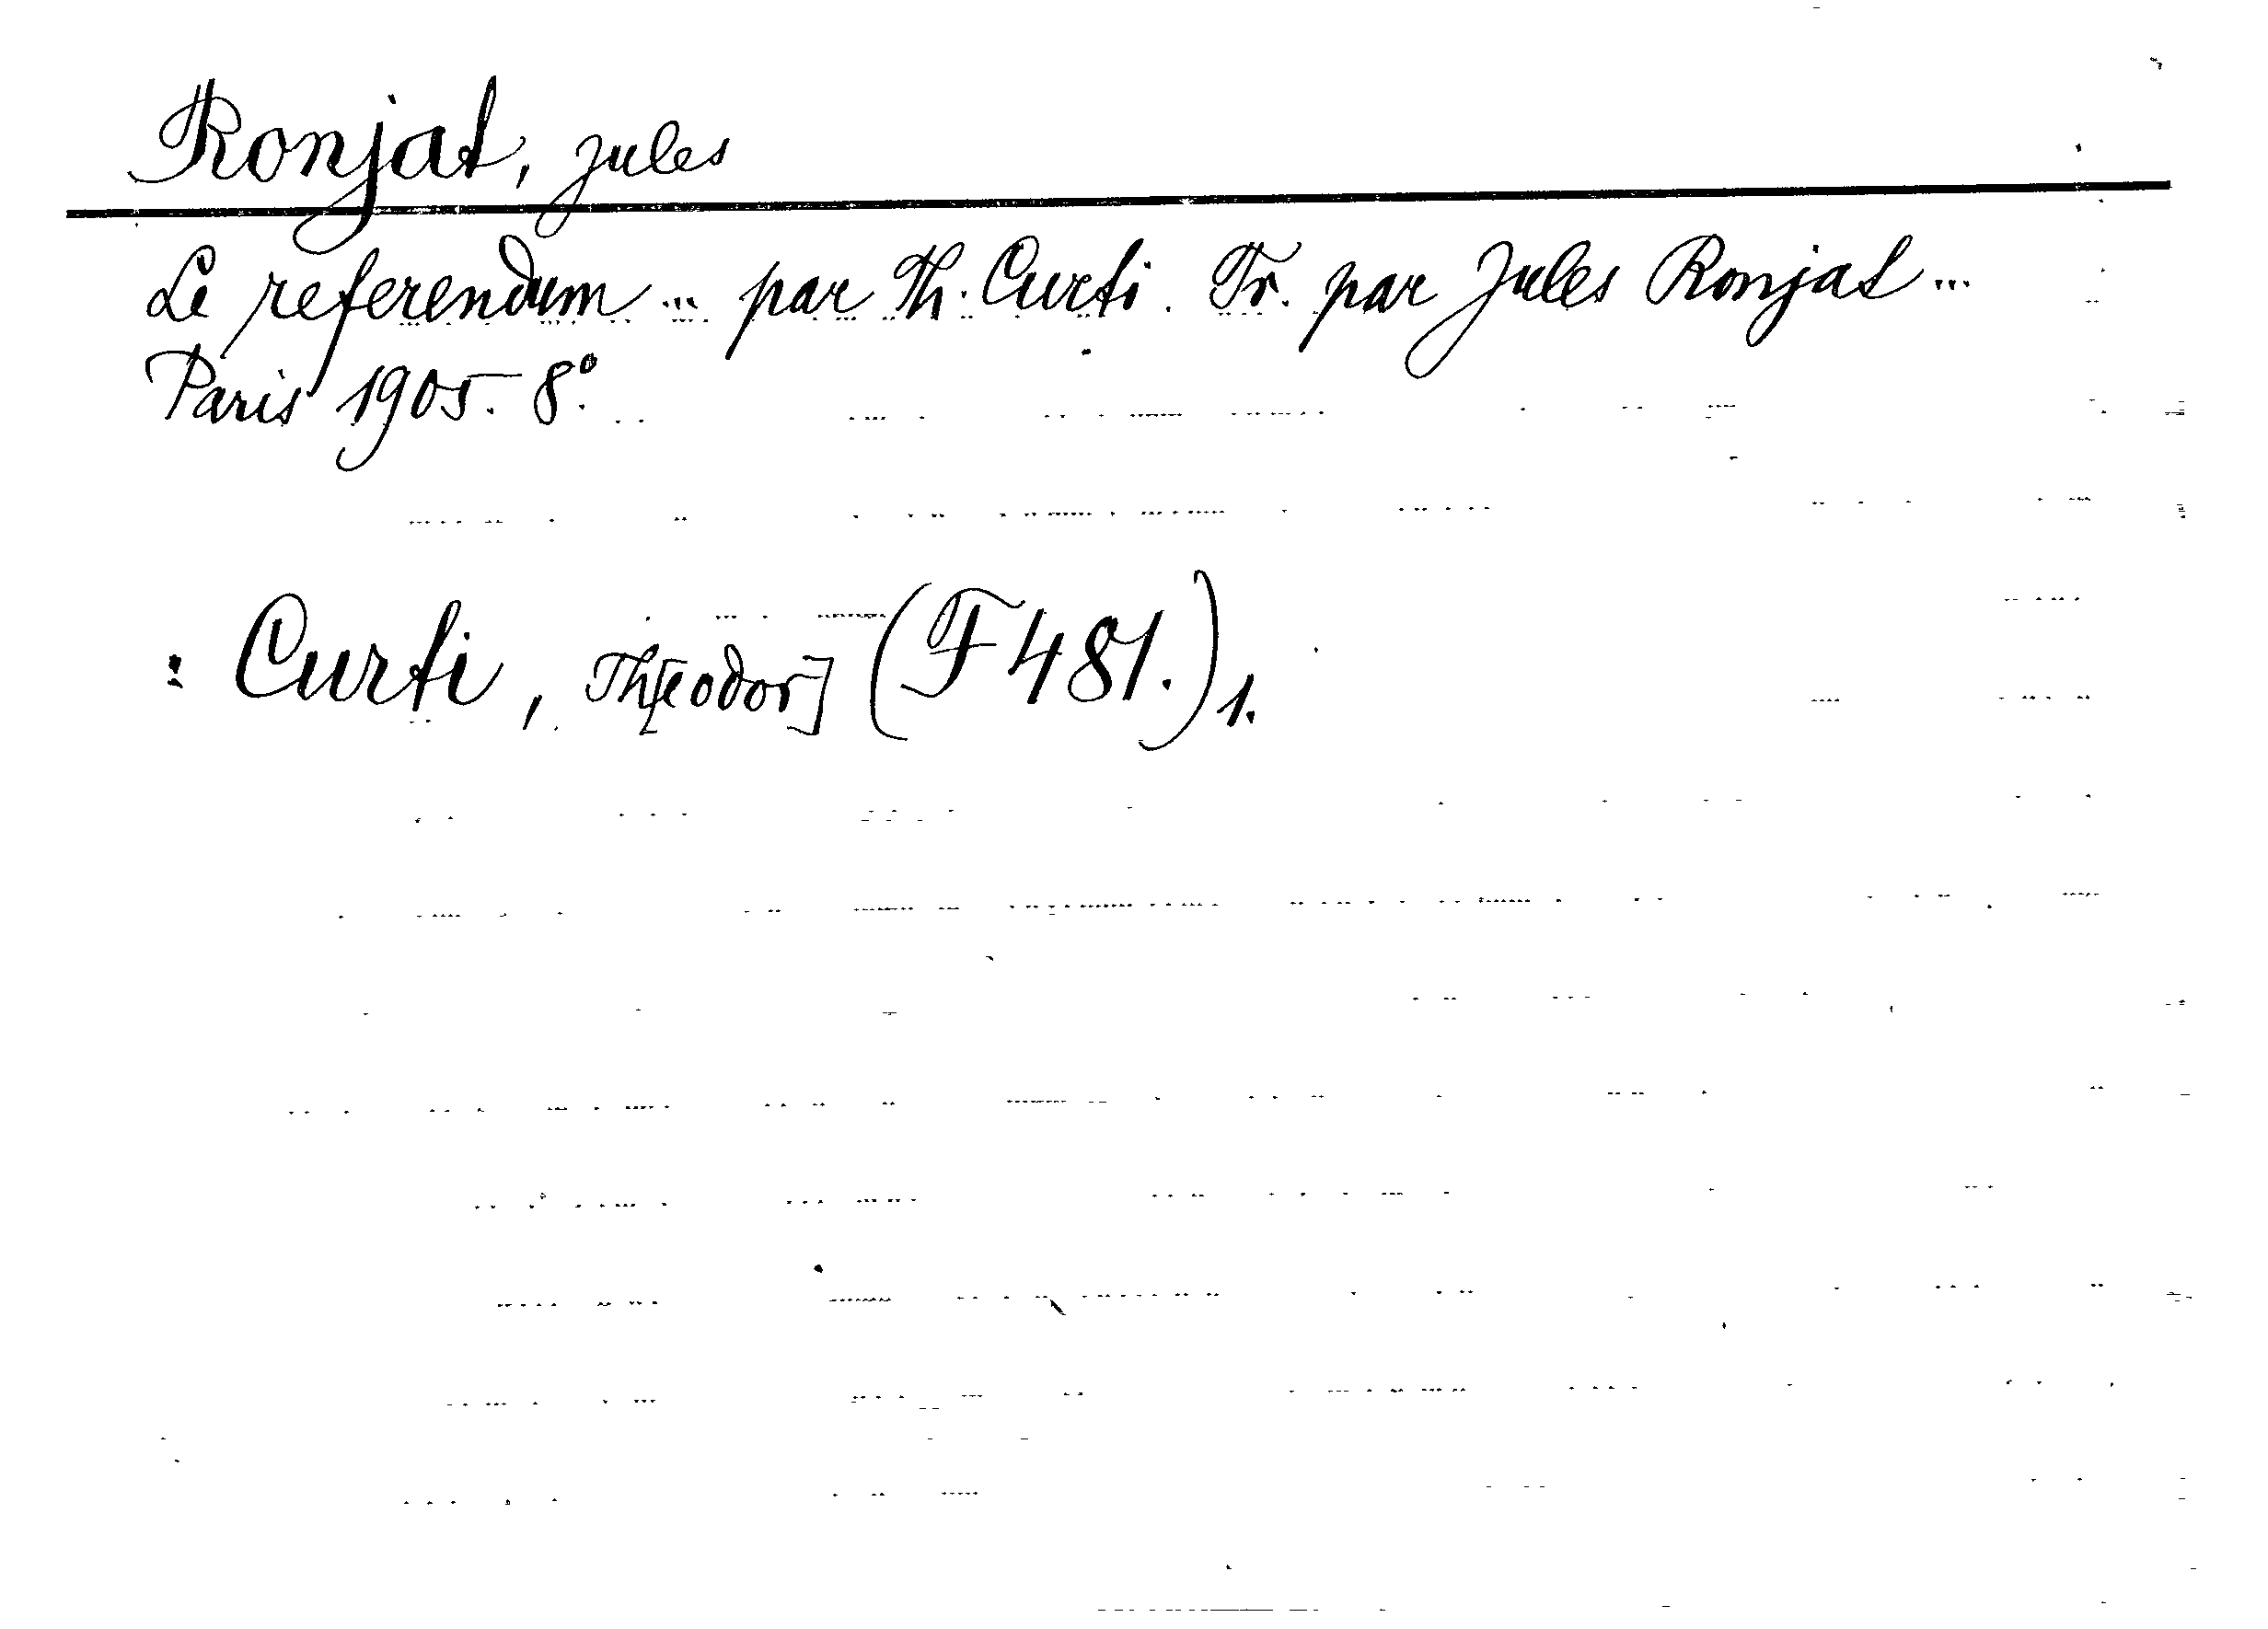 Ronjat, Jules
Le referendum ... par Th. Curti. Tr. par Jules Ronjat ...
Paris 1905. 8°.
: Curti, Th[eodor] (F 481.) 1.